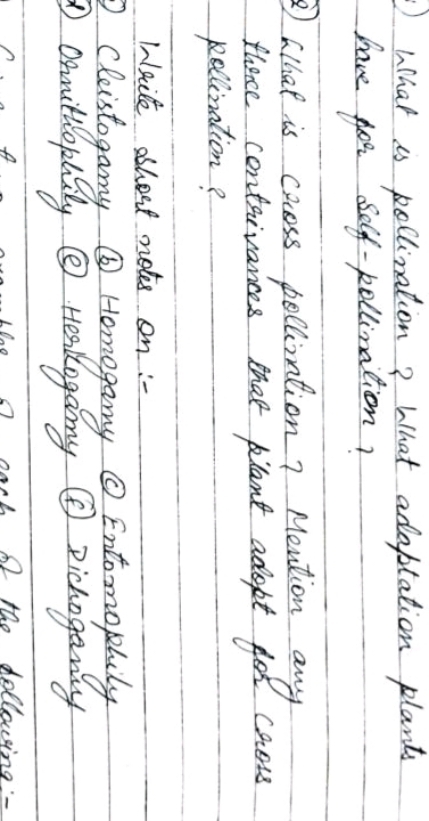 1) What is pollination? What adaptation plants
have for self-pollination?
2) What is cross pollination? Mention any
three contrivances that plant adopt for cross
pollination?
Write short notes on :-
Cleistogamy (b) Homogamy (c) Entomophily
(d) Ornithophily (e) Herkogamy (f) Dichogamy
examples of each of the following:-